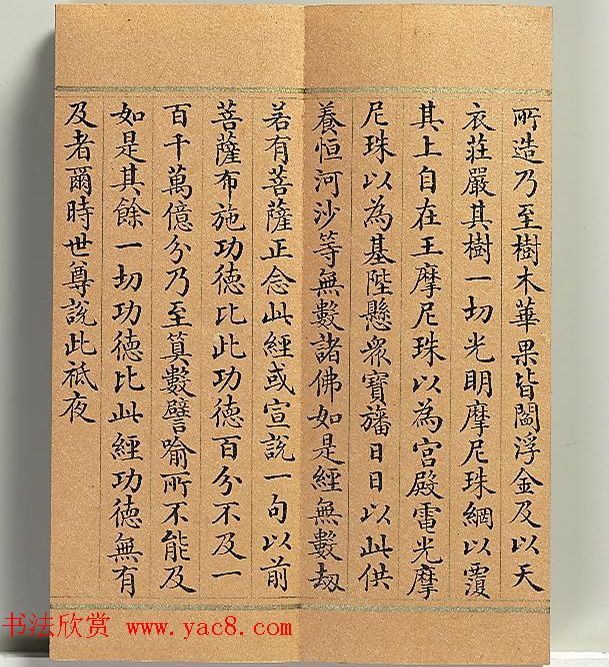 所造乃至樹木華果皆閻浮金及以天
衣莊嚴其樹一切光明摩尼珠網以覆
其上自在王摩尼珠以為宮殿雷光摩
尼珠以為基陛懸眾寶旛日日以此供
養恒河沙等無數諸佛如是經無數劫
若有菩薩正念此經或宣說一句以前
菩薩布施功德比此功德百分不及一
百千萬億分乃至算數譬喻所不能及
如是其餘一切功德比此經功德無有
及者爾時世尊說此祇夜
书法欣赏 www.yac8.com